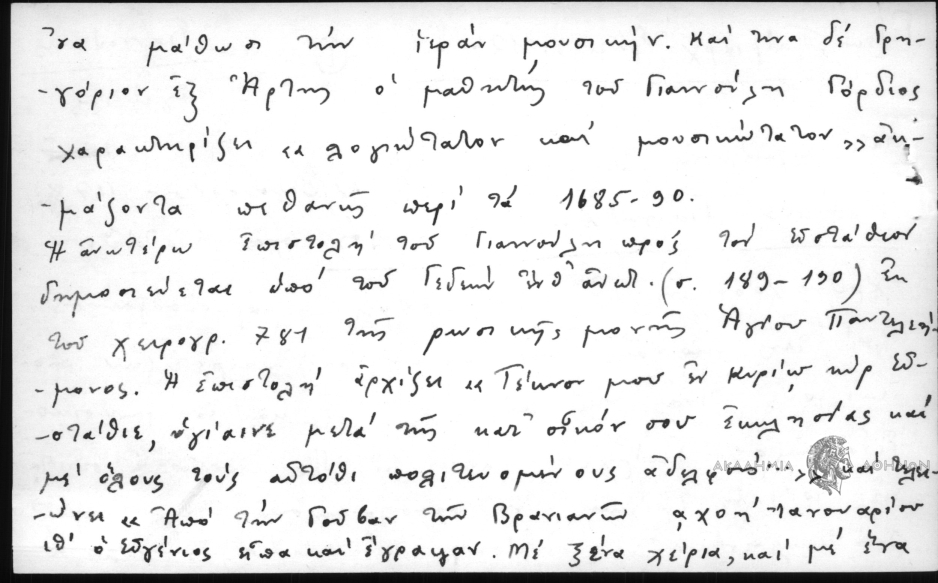 ἵνα μάθωσι τὴν ἱερὰν μουσικήν. Καί τινα δὲ Γρη-
-γόριον ἐξ Ἄρτης ὁ μαθητής τοῦ Γιαννούλη Γόρδιος
χαρακτηρίζει «λογιώτατον καὶ μουσικώτατον» ἀκ-
-μάζοντα πιθανῶς περὶ τὰ 1685-90.
Ἡ ἀνωτέρω ἐπιστολὴ τοῦ Γιαννούλη πρὸς τὸν Εὐστάθιον
δημοσιεύεται ὑπὸ τοῦ Γεδεὼν ἔνθ' ἀνωτ. (σ. 189-190) ἐκ
τοῦ χειρογρ. 781 τῆς ρωσικῆς μονῆς Ἁγίου Παντελεή-
-μονος. Ἡ ἐπιστολὴ ἀρχίζει «Τέκνον μου ἐν Κυρίῳ κὺρ Εὐ-
-στάθιε, ὑγίαινε μετὰ τῆς κατ' οἶκόν σου ἐκκλησίας καὶ
μὲ ὅλους τοὺς αὐτόθι πολιτευομένους ἀδελφούς» καὶ τελει-
-ώνει «Ἀπὸ τὴν Γούβαν τῶν Βρανιανῶν αχοη Ιανουαρίου
ιθ' ὁ Εὐγένιος εἶπα καὶ ἔγραψαν. Μὲ ξένα χέρια, καὶ μὲ ἕνα
ΑΚΑΔΗΜΙΑ ΑΘΗΝΩΝ